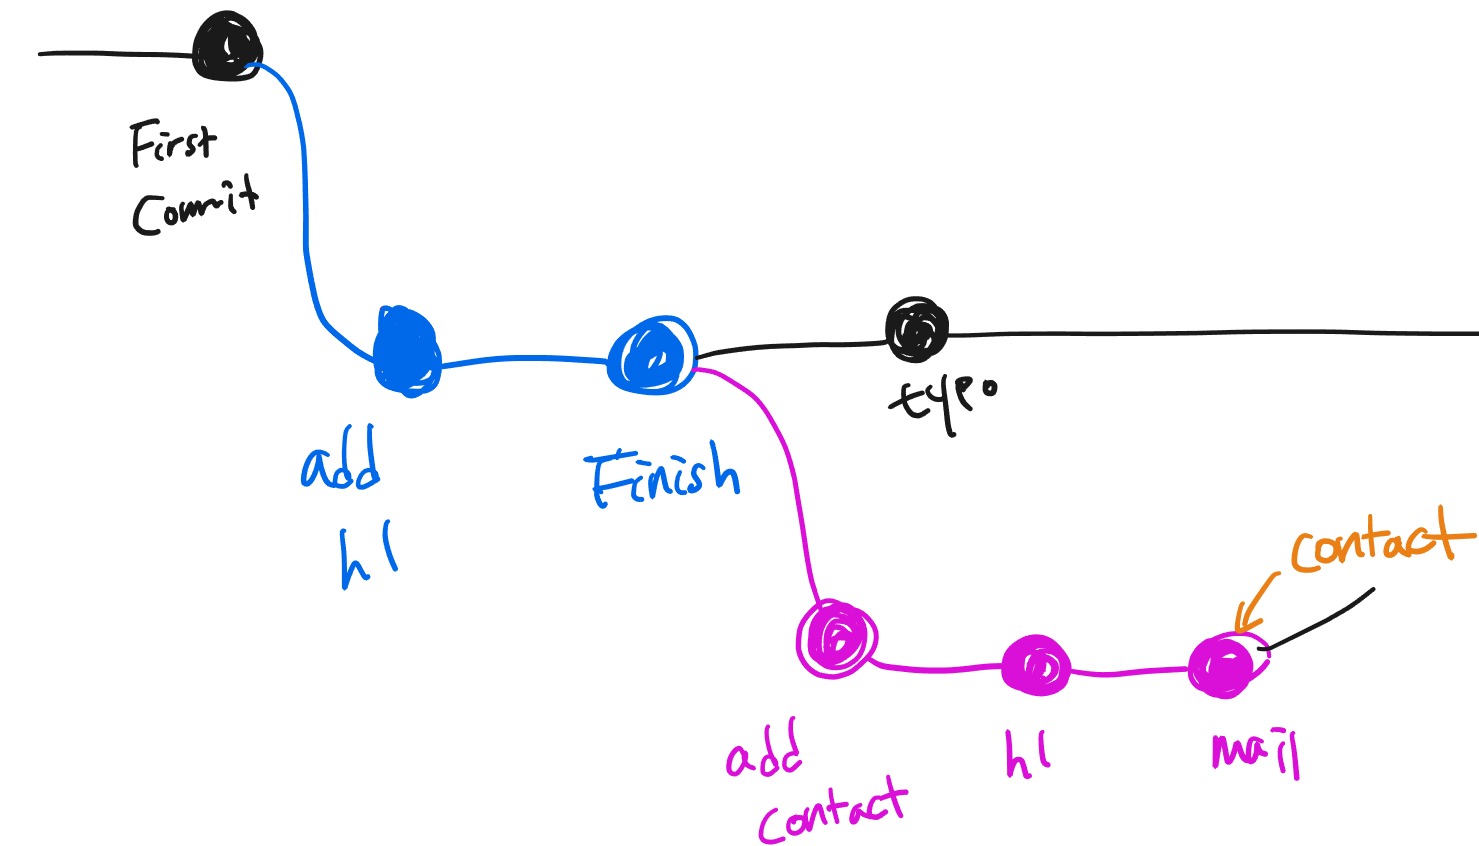 First
Commit
add
h1
Finish
typo
contact
add
contact
h1
mail